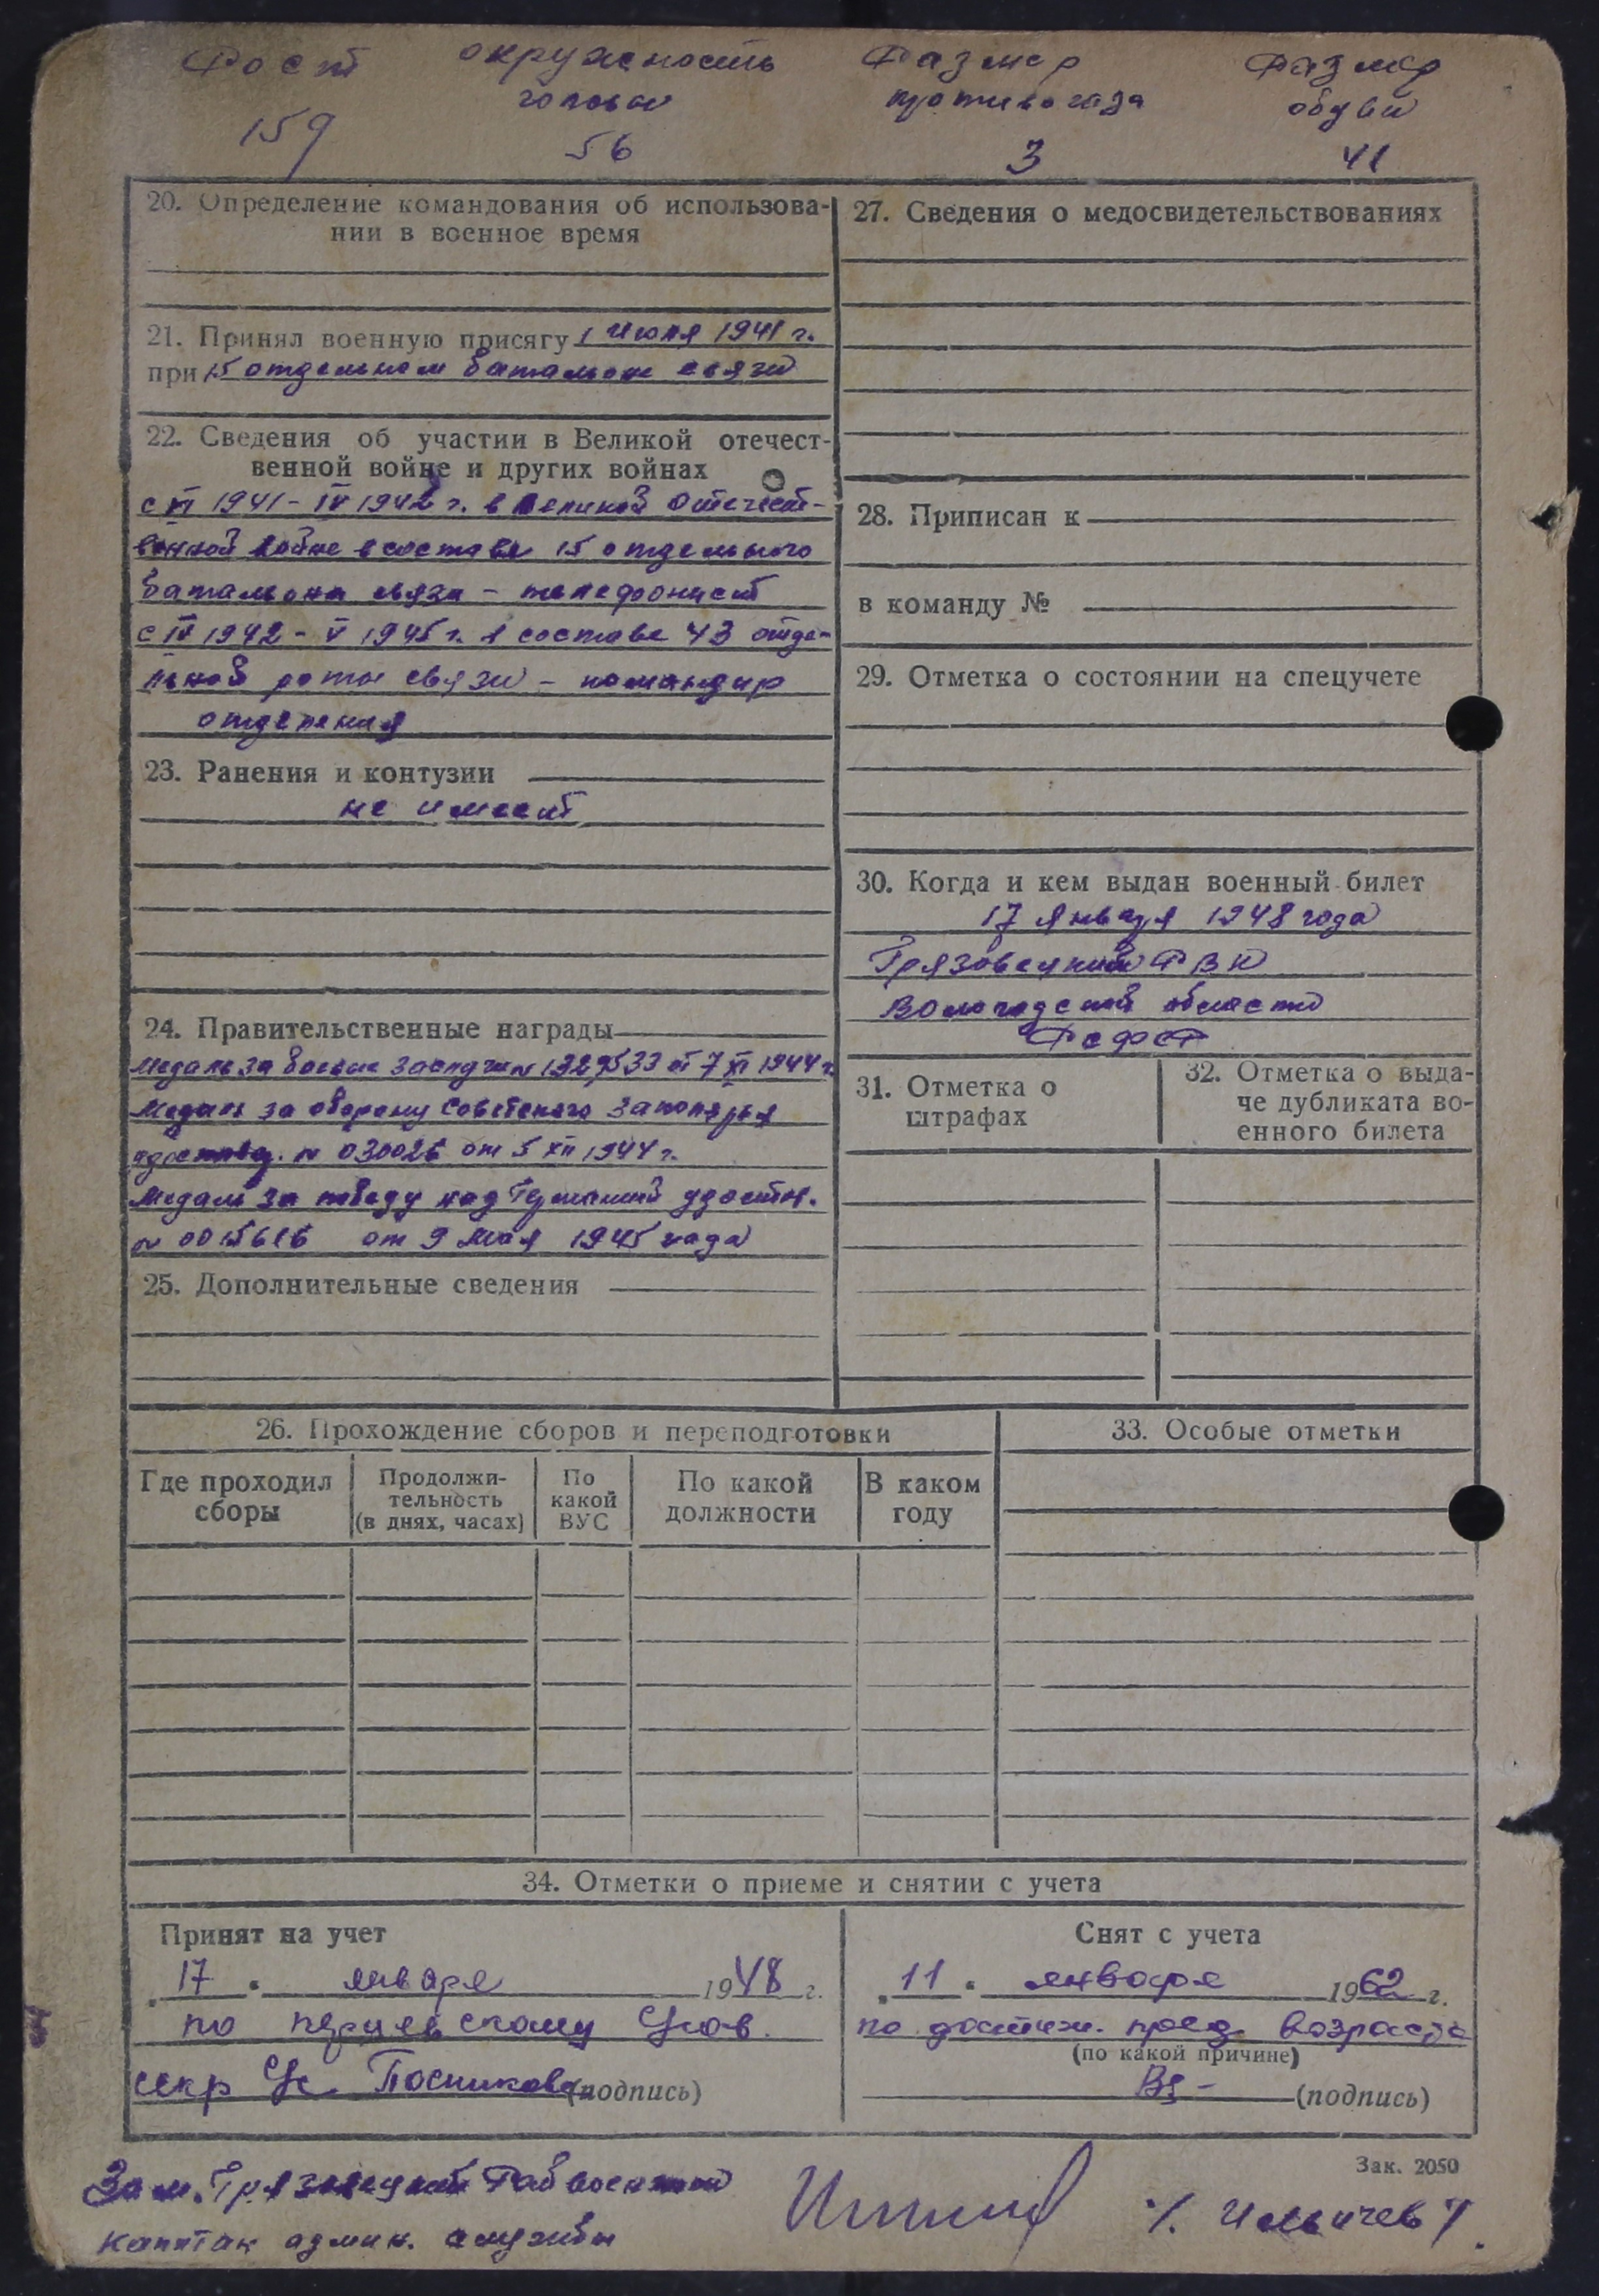 Рост окружность Размер Размер
головы противогаза обуви
159 56 3 41
20. Определение командования об использова-
нии в военное время
21. Принял военную присягу 1 июля 1941 г.
при 15 отдельном батальоне связи
22. Сведения об участии в Великой отечест-
венной войне и других войнах
с VI 1941 - IV 1942 г. в Великой Отечест-
венной войне в составе 15 отдельного
батальона связи - телефонист
с IV 1942 - V 1945 г. в составе 43 отде-
льной роты связи - командир
отделения
23. Ранения и контузии
не имеет
24. Правительственные награды
Медаль за боевые заслуги № 1329533 от 7 XI 1944 г.
Медаль за оборону Советского Заполярья
удостов. № 030026 от 5 XII 1944 г.
Медаль за победу над Германией удостов.
№ 0015616 от 9 мая 1945 года
25. Дополнительные сведения
27. Сведения о медосвидетельствованиях
28. Приписан к
в команду №
29. Отметка о состоянии на спецучете
30. Когда и кем выдан военный билет
17 января 1948 года
Грязовецкий РВК
Вологодской области
РСФСР
31. Отметка о
штрафах
32. Отметка о выда-
че дубликата во-
енного билета
26. Прохождение сборов и переподготовки
Где проходил
сборы
Продолжи-
тельность
(в днях, часах)
По
какой
ВУС
По какой
должности
В каком
году
33. Особые отметки
34. Отметки о приеме и снятии с учета
Принят на учет
17 января 1948 г.
по
секр Ус Посникова (подпись)
Снят с учета
11 января 1962 г.
по достиж. пред. возраста
(по какой причине)
(подпись)
Зак. 2050
Зам. Грязовецкий Райвоенком
капитан админ. службы /. Ильичев /.